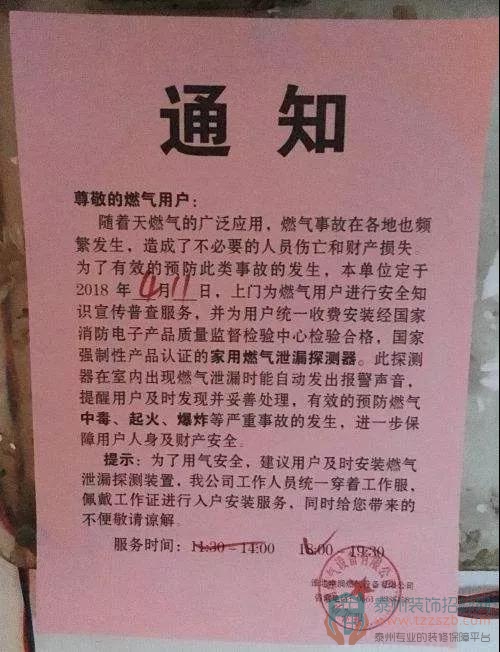 通知
尊敬的燃气用户：
随着天燃气的广泛应用，燃气事故在各地也频
繁发生，造成了不必要的人员伤亡和财产损失。
为了有效的预防此类事故的发生，本单位定于
2018 年 4 月 11 日，上门为燃气用户进行安全知
识宣传普查服务，并为用户统一收费安装经国家
消防电子产品质量监督检验中心检验合格，国家
强制性产品认证的家用燃气泄漏探测器。此探测
器在室内出现燃气泄漏时能自动发出报警声音，
提醒用户及时发现并妥善处理，有效的预防燃气
中毒、起火、爆炸等严重事故的发生，进一步保
障用户人身及财产安全。
提示：为了用气安全，建议用户及时安装燃气
泄漏探测装置，我公司工作人员统一穿着工作服，
佩戴工作证进行入户安装服务，同时给您带来的
不便敬请谅解。
服务时间：11:30－14:00 18:00－19:30
燃气设备有限公司
泰州装饰招
www.tzzszb.com
泰州专业的装修保障平台